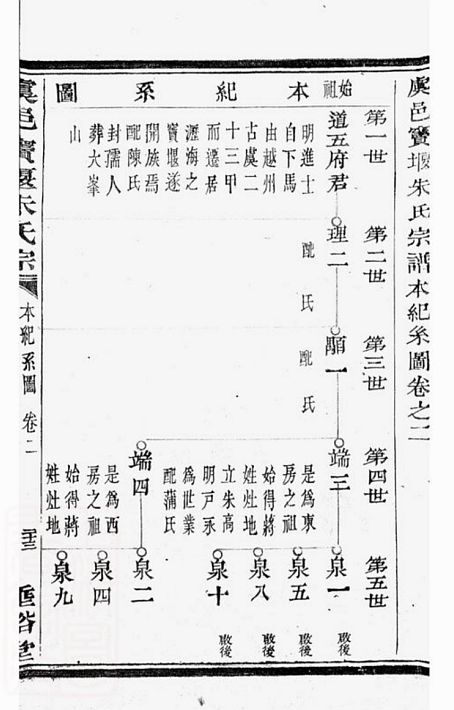 虞邑寶堰朱氏宗譜本紀系圖卷之二
第一世
第二世
第三世
第四世
第五世
本紀系圖
始祖
道五府君
明進士
自下馬
由越州
古虞二
十三甲
而遷居
瀝海之
寶堰遂
開族焉
配陳氏
封孺人
葬大峯
山
理二
配氏
顒一
配氏
端三
是爲東
房之祖
始得蔣
姓灶地
立朱高
明戶承
爲世業
配蒲氏
端四
是爲西
房之祖
始得蔣
姓灶地
泉一
啟後
泉五
啟後
泉八
啟後
泉十
啟後
泉二
泉四
泉九
虞邑寶堰朱氏宗
本紀系圖
卷二